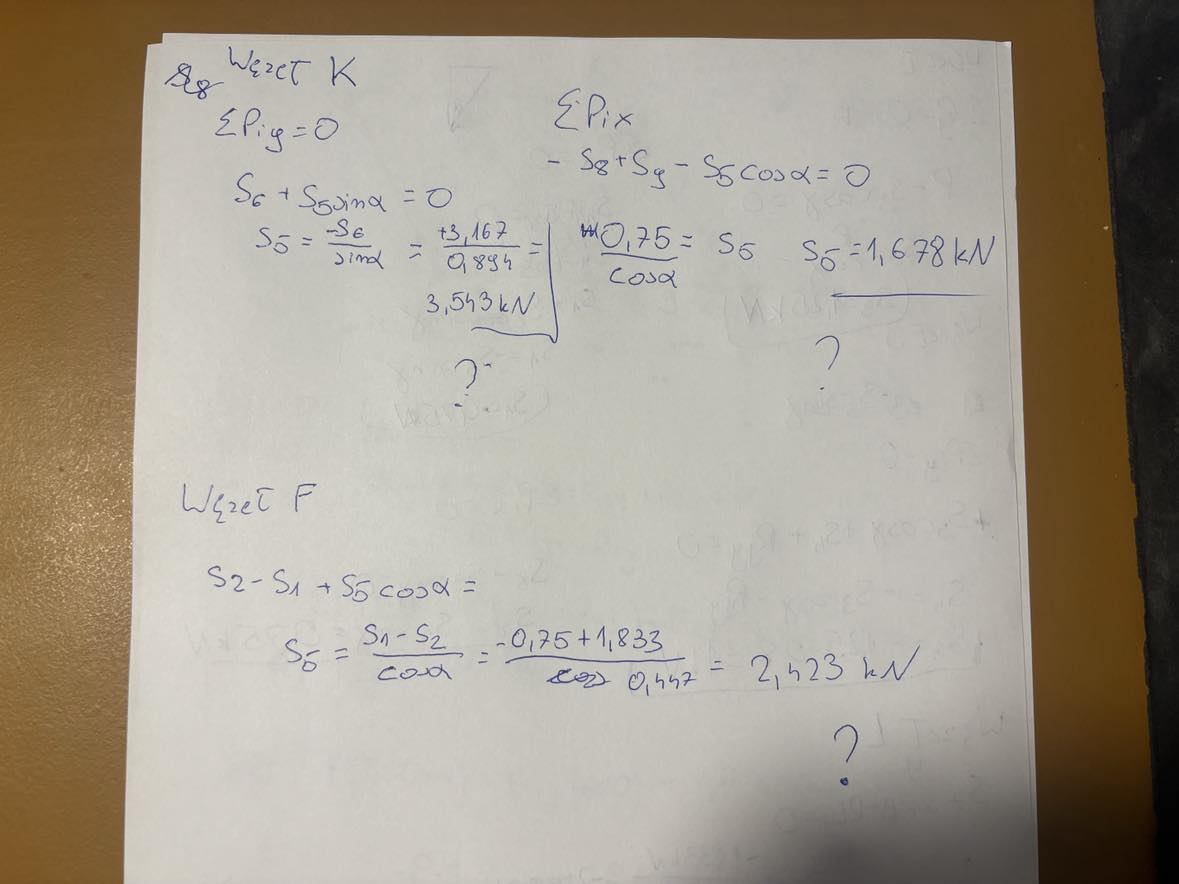 Węzeł K
ΣPiy = 0
S6 + S5 sinα = 0
S5 = -S6/sinα = +3,167/0,894 =
3,543 kN
?
ΣPix
- S8 + S9 - S5 cosα = 0
0,75/cosα = S5 S5 = 1,678 kN
?
Węzeł F
S2 - S1 + S5 cosα =
S5 = S1 - S2/cosα = -0,75 + 1,833/0,447 = 2,423 kN
?